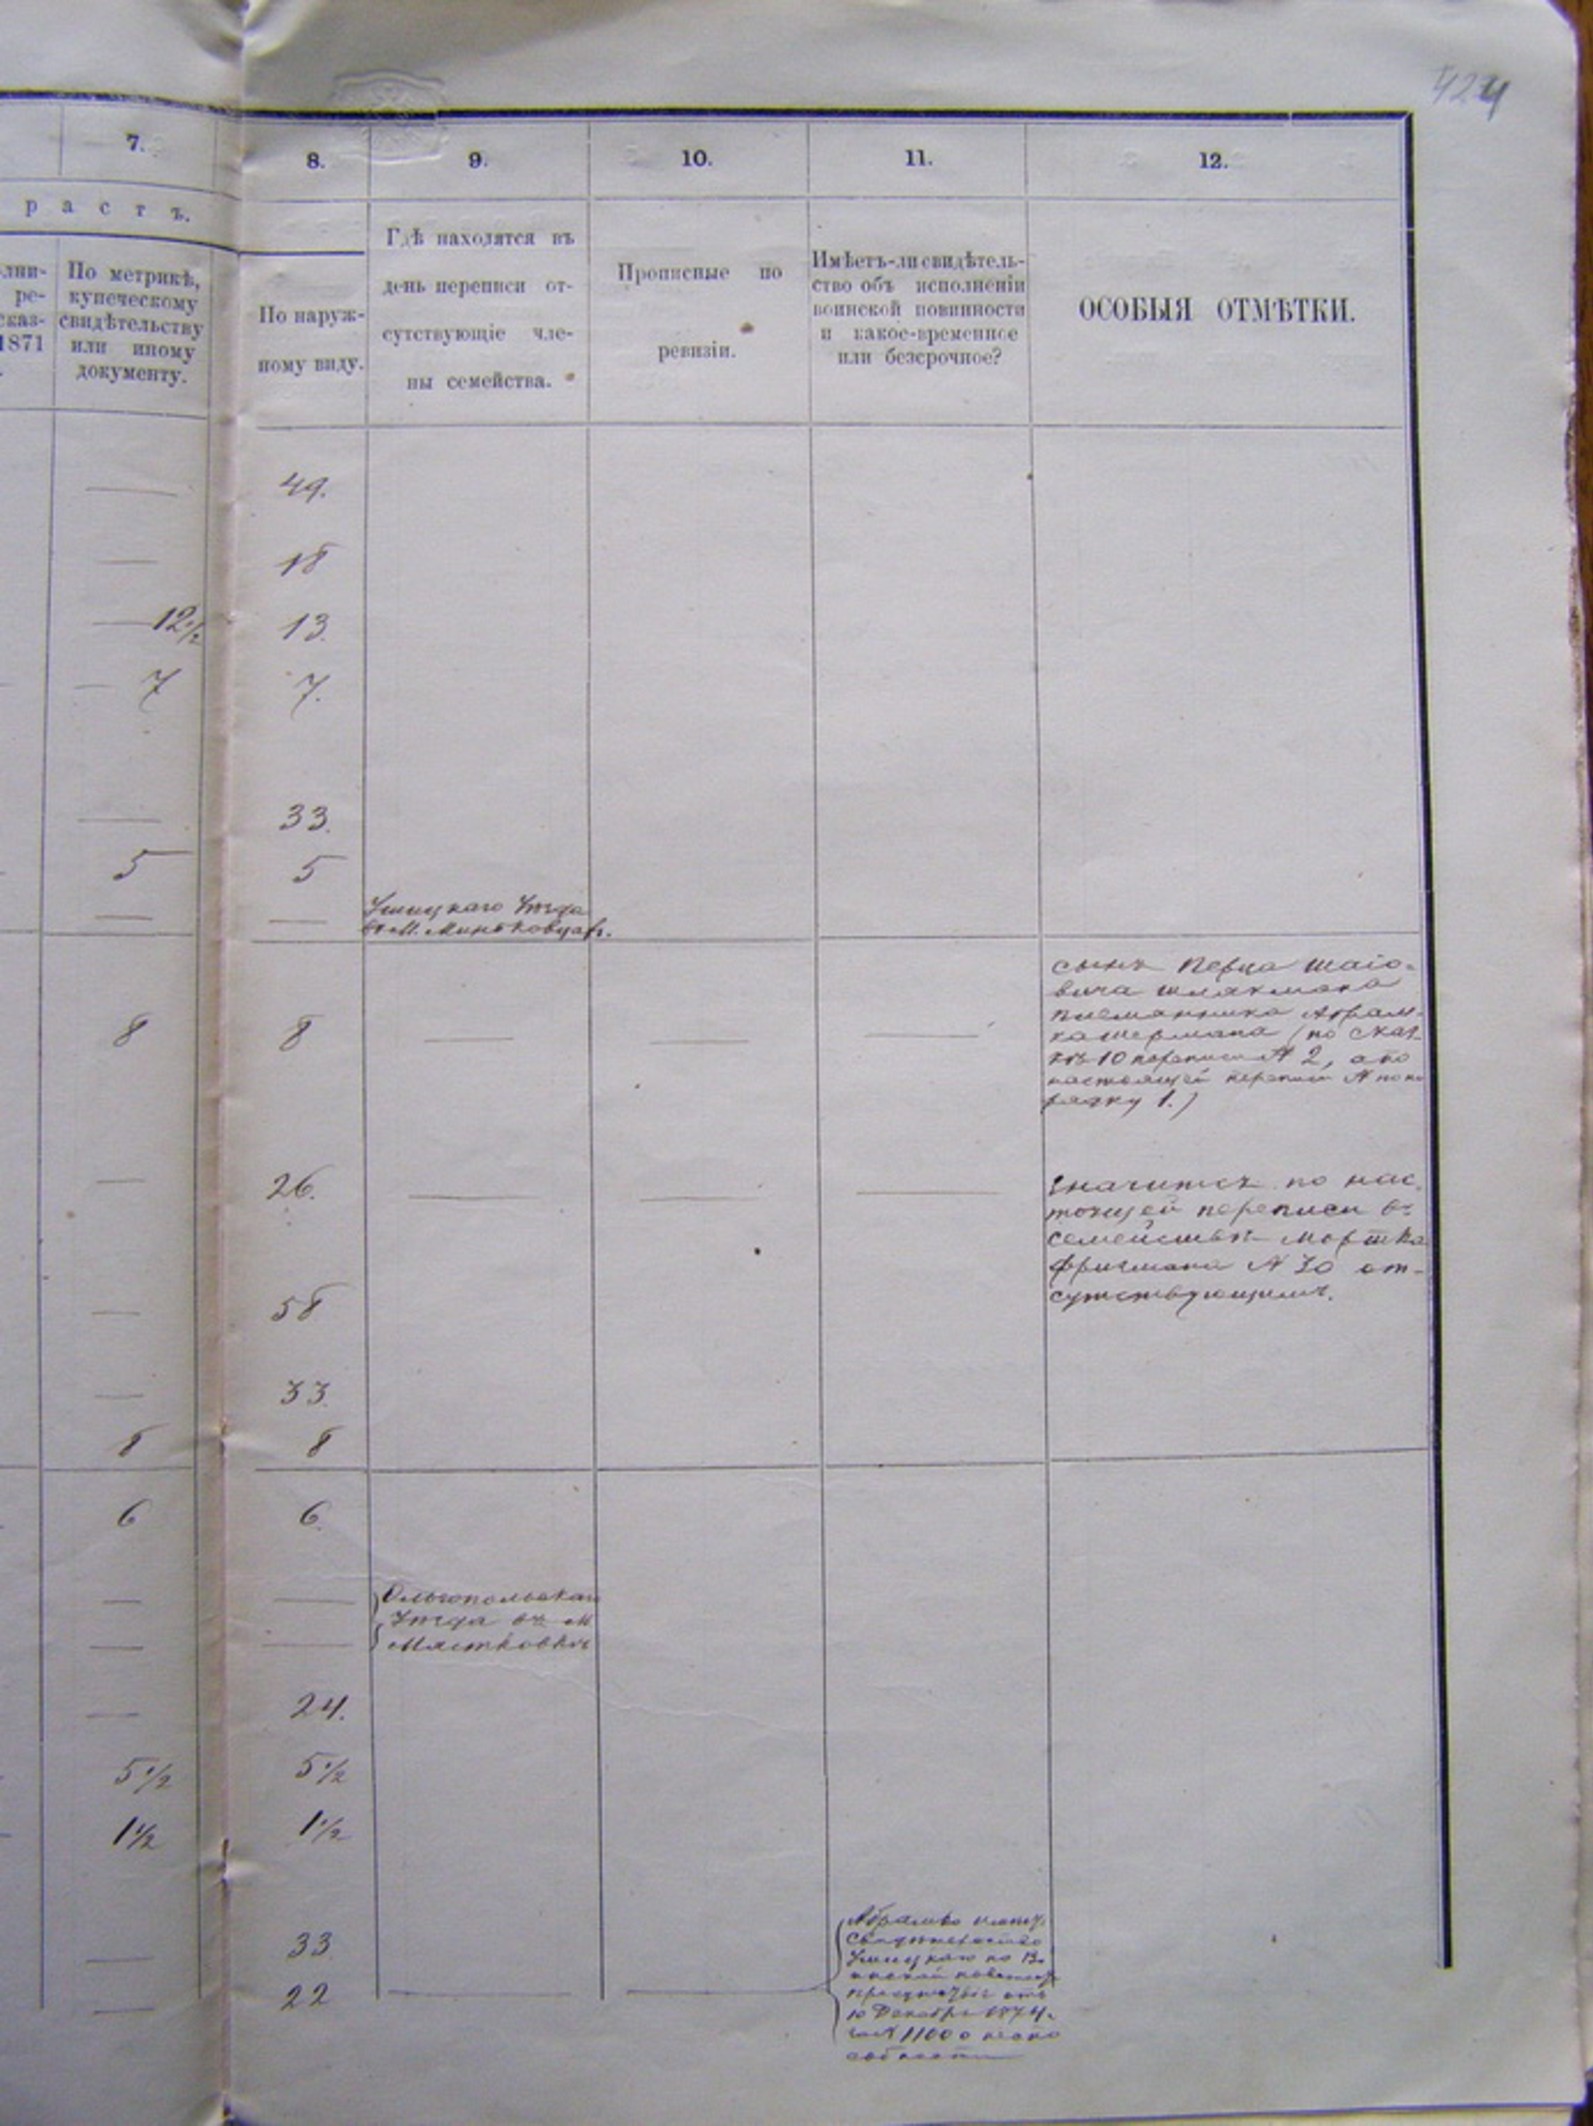 424
7.
8.
9.
10.
11.
12.
р а с т ъ.
лни-
ре-
сказ-
1871
По метрикѣ,
купеческому
свидѣтельству
или иному
документу.
По наруж-
ному виду.
Гдѣ находятся въ
день переписи от-
сутствующіе чле-
ны семейства.
Прописные по
ревизіи.
Имѣетъ-ли свидѣтель-
ство объ исполненіи
воинской повинности
и какое-временное
или безсрочное?
ОСОБЫЯ ОТМѢТКИ.
49.
18
12 1/2 13.
7 7.
33.
5 5
Ушицкаго Уѣзда
въ М. Миньковцахъ.
8 8
сынъ Перца Шаіо-
вича Шлякмана
племянника Абрам-
ка Шермана (по сказ-
кѣ 10 переписи № 2, а по
настоящей переписи № по по
рядку 1.)
26.
значится по нас
тоящей переписи въ
семействѣ Мортка
Фришмана № 30 от-
сутствующимъ.
58
33.
8 8
6 6.
Ольгопольскаго
Уѣзда въ М
Мястковкѣ
24.
5 1/2 5 1/2
1 1/2 1 1/2
33
22
Абрамко имѣетъ
свидѣтельство
Ушицкаго по Во
инской повинност
присутствія отъ
10 Декабря 1874.
за № 1100 о неспо
собности